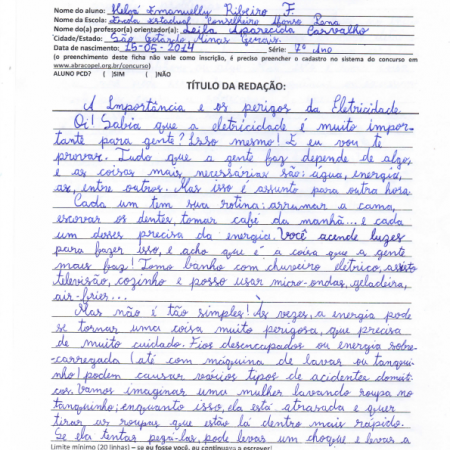 Nome do aluno: Helzá Emanuelly Ribeiro F.
Nome da Escola: Escola Estadual Conselheiro Afonso Pena
Nome do(a) professor(a) orientador(a): Leila Aparecida Carvalho
Cidade/Estado: São Gotardo, Minas Gerais.
Data de nascimento: 15-05-2014 Série: 7º Ano
(o preenchimento deste ficha não vale como inscrição, é preciso preencher o cadastro no sistema do concurso em
www.abracopel.org.br/concurso)
ALUNO PCD? ( )SIM ( )NÃO
TÍTULO DA REDAÇÃO:
A Importância e os perigos da Eletricidade
Oi! Sabia que a eletricidade é muito impor-
tante para gente? Isso mesmo! E eu vou te
provar. Tudo que a gente faz depende de algo,
e as coisas mais necessárias são: água, energia,
ar, entre outros. Mas isso é assunto para outra hora.
Cada um tem sua rotina: arrumar a cama,
escovar os dentes, tomar café da manhã... e cada
um desses precisa da energia. Você acende luzes
para fazer isso, e acho que é a coisa que a gente
mais faz! Tomo banho com chuveiro elétrico, assisto
televisão, cozinho e posso usar micro-ondas, geladeira,
air-frier...
Mas não é tão simples! Às vezes, a energia pode
se tornar uma coisa muito perigosa, que precisa
de muito cuidado. Fios desencapados ou energia sobre-
carregada (até com máquina de lavar ou tanqui-
nho) podem causar vários tipos de acidentes domésti-
cos. Vamos imaginar uma mulher lavando roupa no
tanquinho; enquanto isso, ela está atrasada e quer
tirar as roupas que estão lá dentro mais rápido.
Se ela tentar pegá-las, pode levar um choque e levar a
Limite mínimo (20 linhas) – se eu fosse você, eu continuava a escrever!